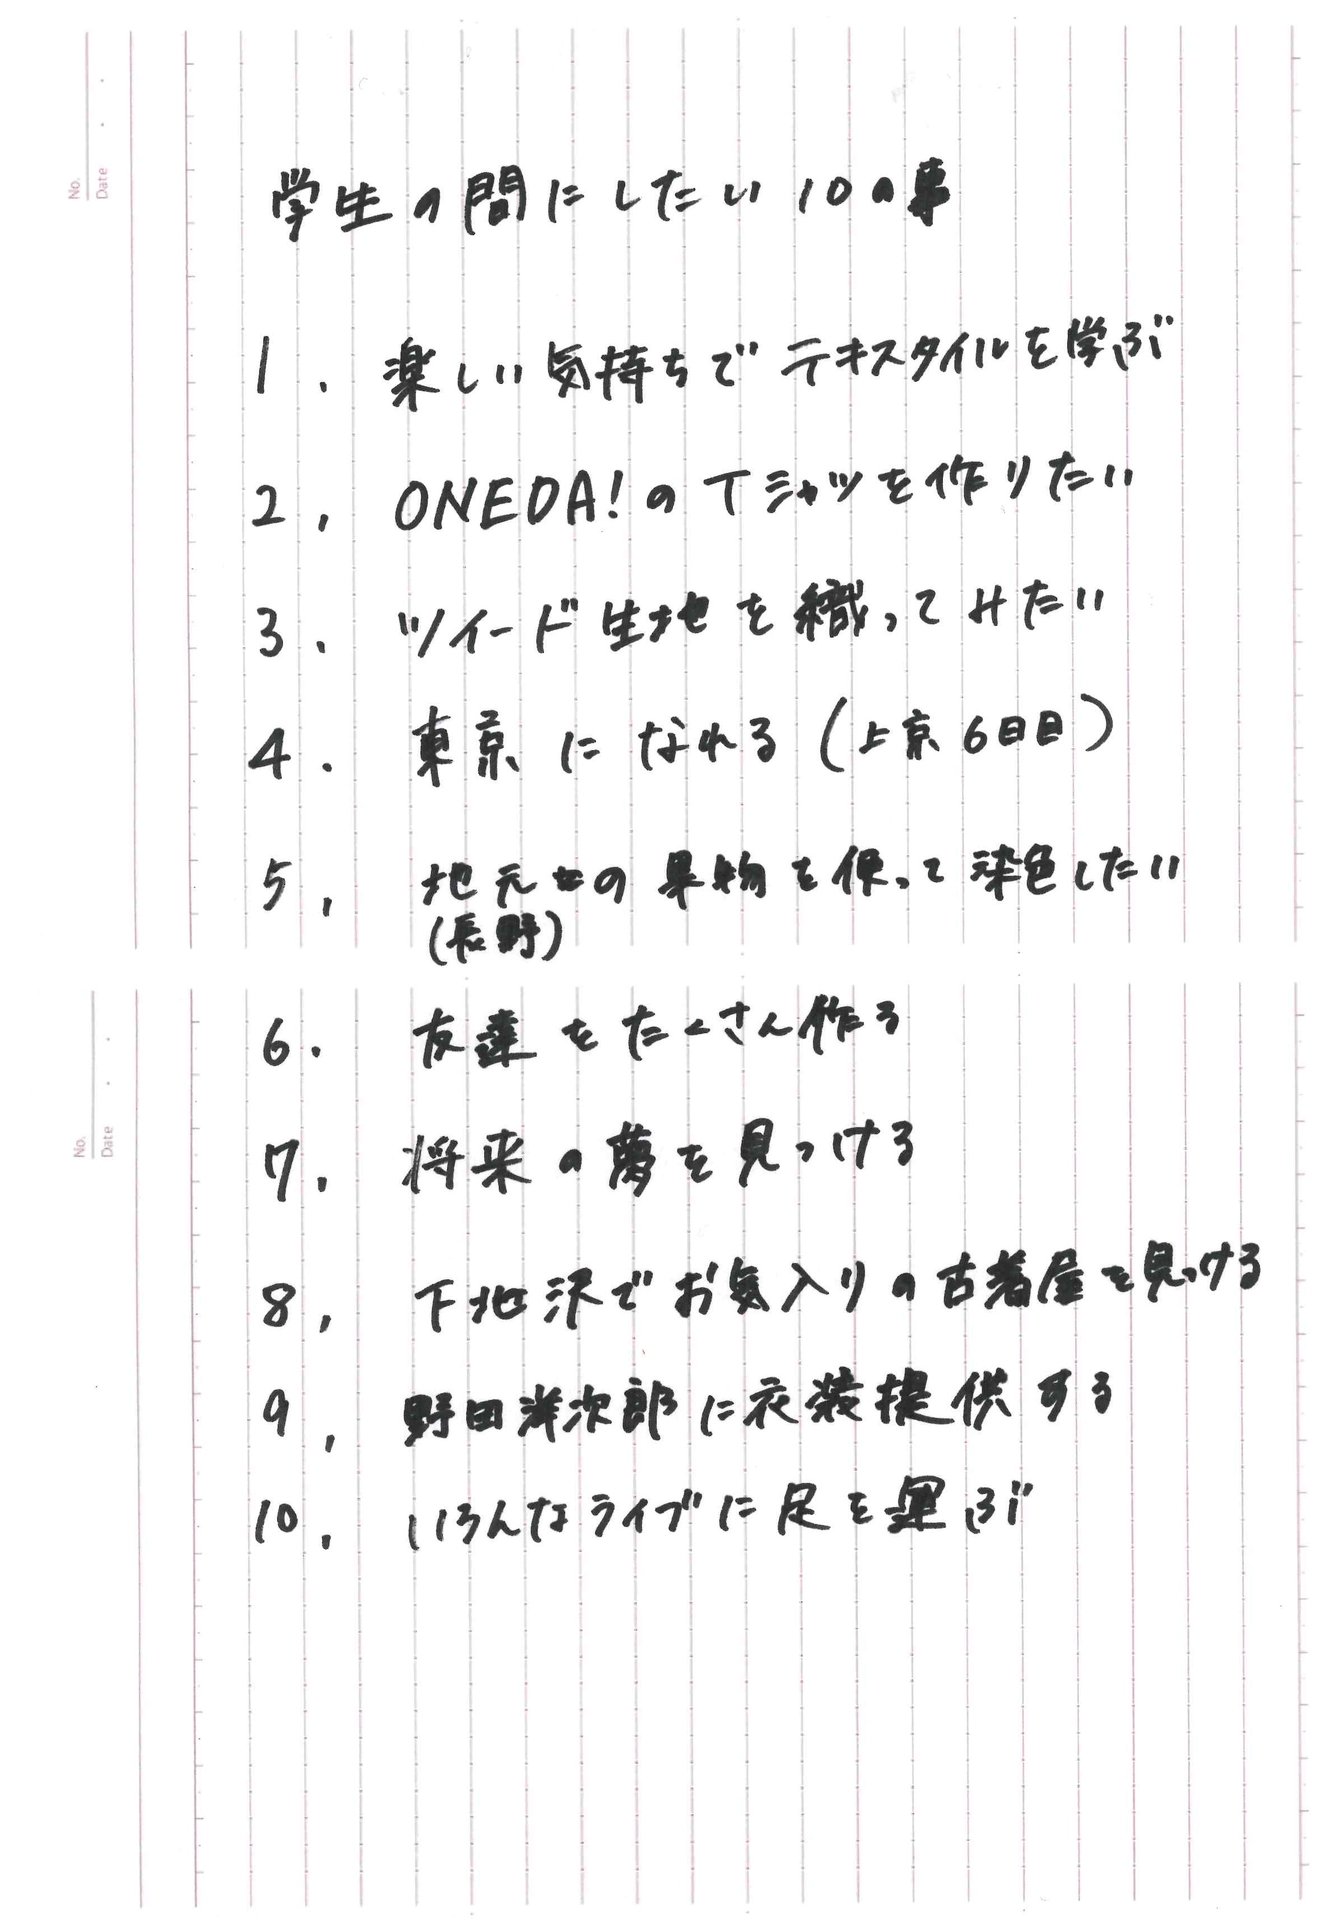 No.
Date
学生の間にしたい10の事
1. 楽しい気持ちでテキスタイルを学ぶ
2, ONEDA!のTシャツを作りたい
3. ツイード生地を織ってみたい
4. 東京になれる(上京6日目)
5, 地元の果物を使って染色したい
(長野)
6. 友達をたくさん作る
No.
Date
7. 将来の夢を見つける
8, 下地沢でお気入りの古着屋を見つける
9, 野田洋次郎に衣装提供する
10, いろんなライブに足を運ぶ